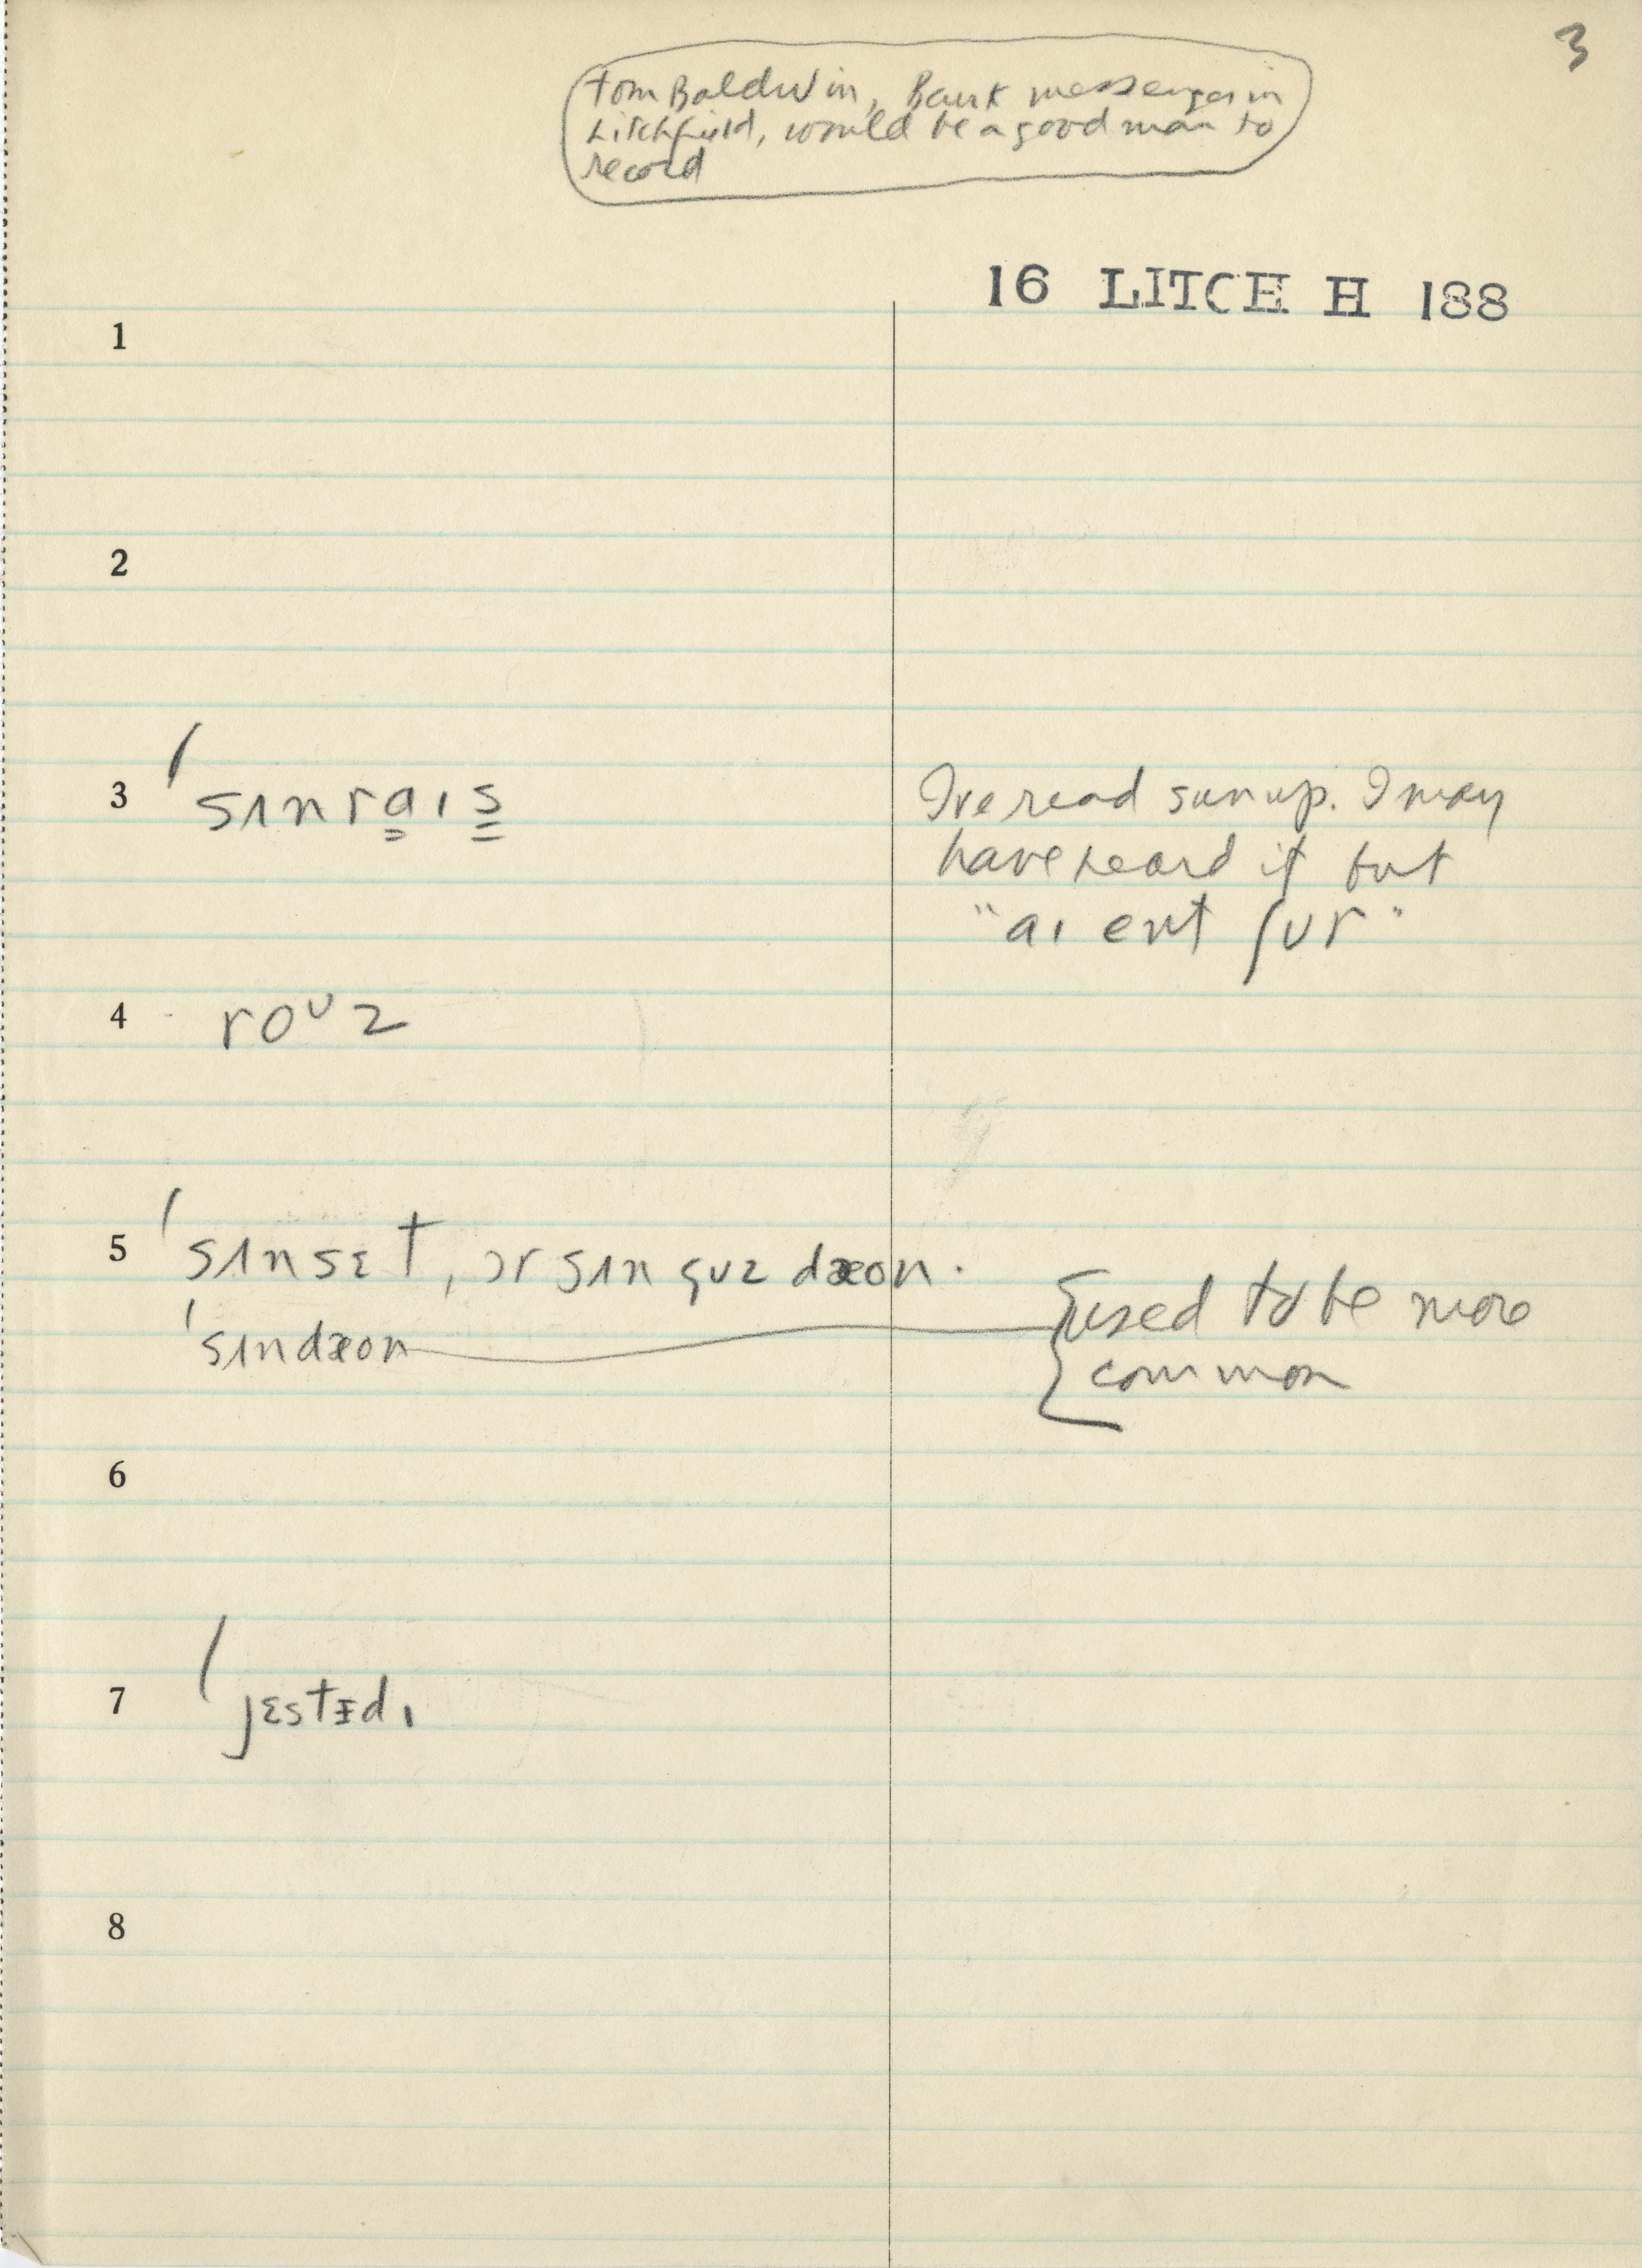 3
Tom Baldwin, Bank messenger in
Litchfield, would be a good man to
record
16 LITCH H 188
1
2
3 ˈsʌnraɪs I've read sun up. I may
have heard it but
"aɪ ent ʃʊr"
4 roᴜz
5 ˈsʌnsɛt, ɔr sʌn guz dæon.
ˈsʌndæon used to be more
common
6
7 ˈjɛstɪdɪ
8